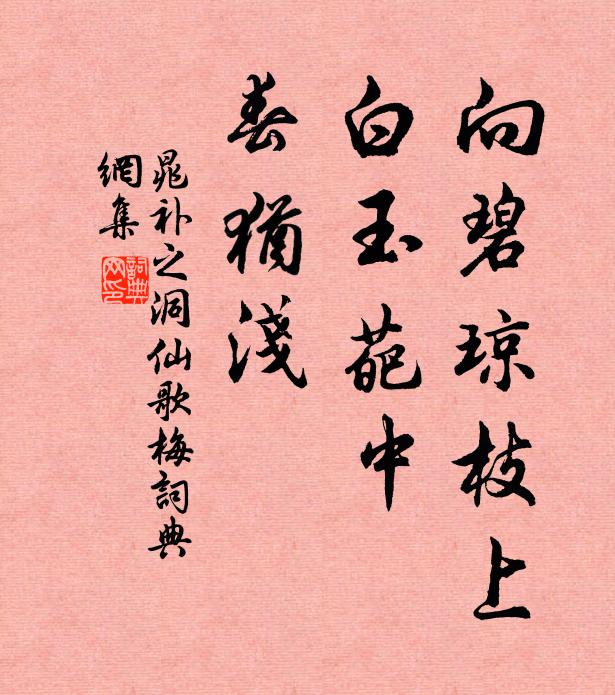 向碧琼枝上
白玉葩中
春猶淺
晁补之洞仙歌梅詞典
網集
詞典網印